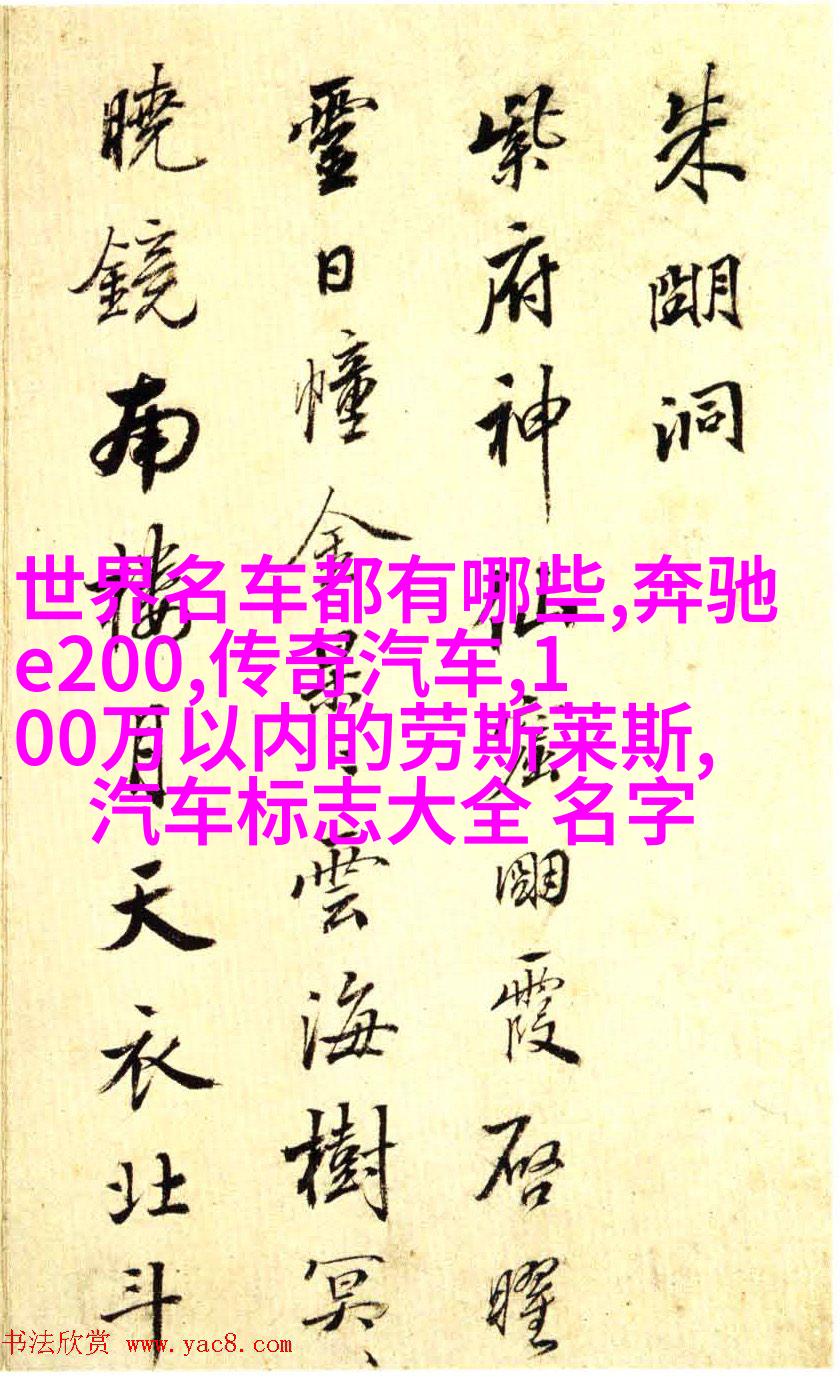 朱朙洞
紫府神仙窟朙霞啓曜
靈日幢金景〻雲海樹冥〻
曉鏡南樓月天衣北斗
世界名车都有哪些,奔驰
e200,传奇汽车,1
00万以内的劳斯莱斯,
汽车标志大全 名字
书法欣赏 www.yac8.com